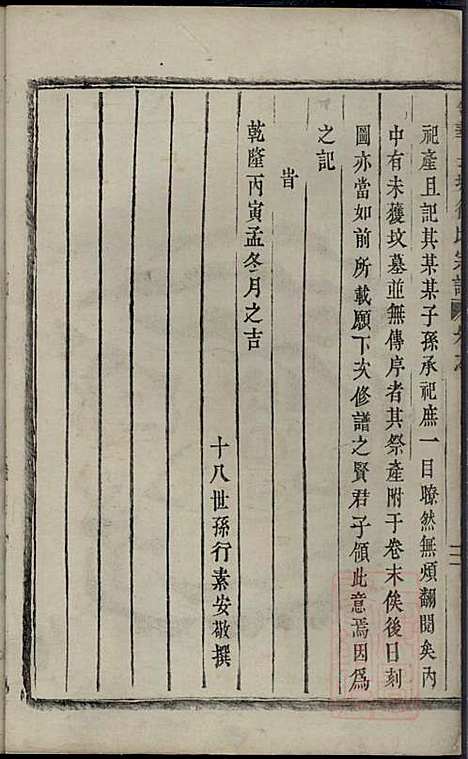 祀產且記其某某子孫承祀庶一目瞭然無煩翻閱矣內
中有未獲坟墓並無傳序者其祭產附于卷末俟後日刻
圖亦當如前所載願下次修譜之賢君子傾此意焉因爲
之記
旹
乾隆丙寅孟冬月之吉
十八世孫行素安敬撰